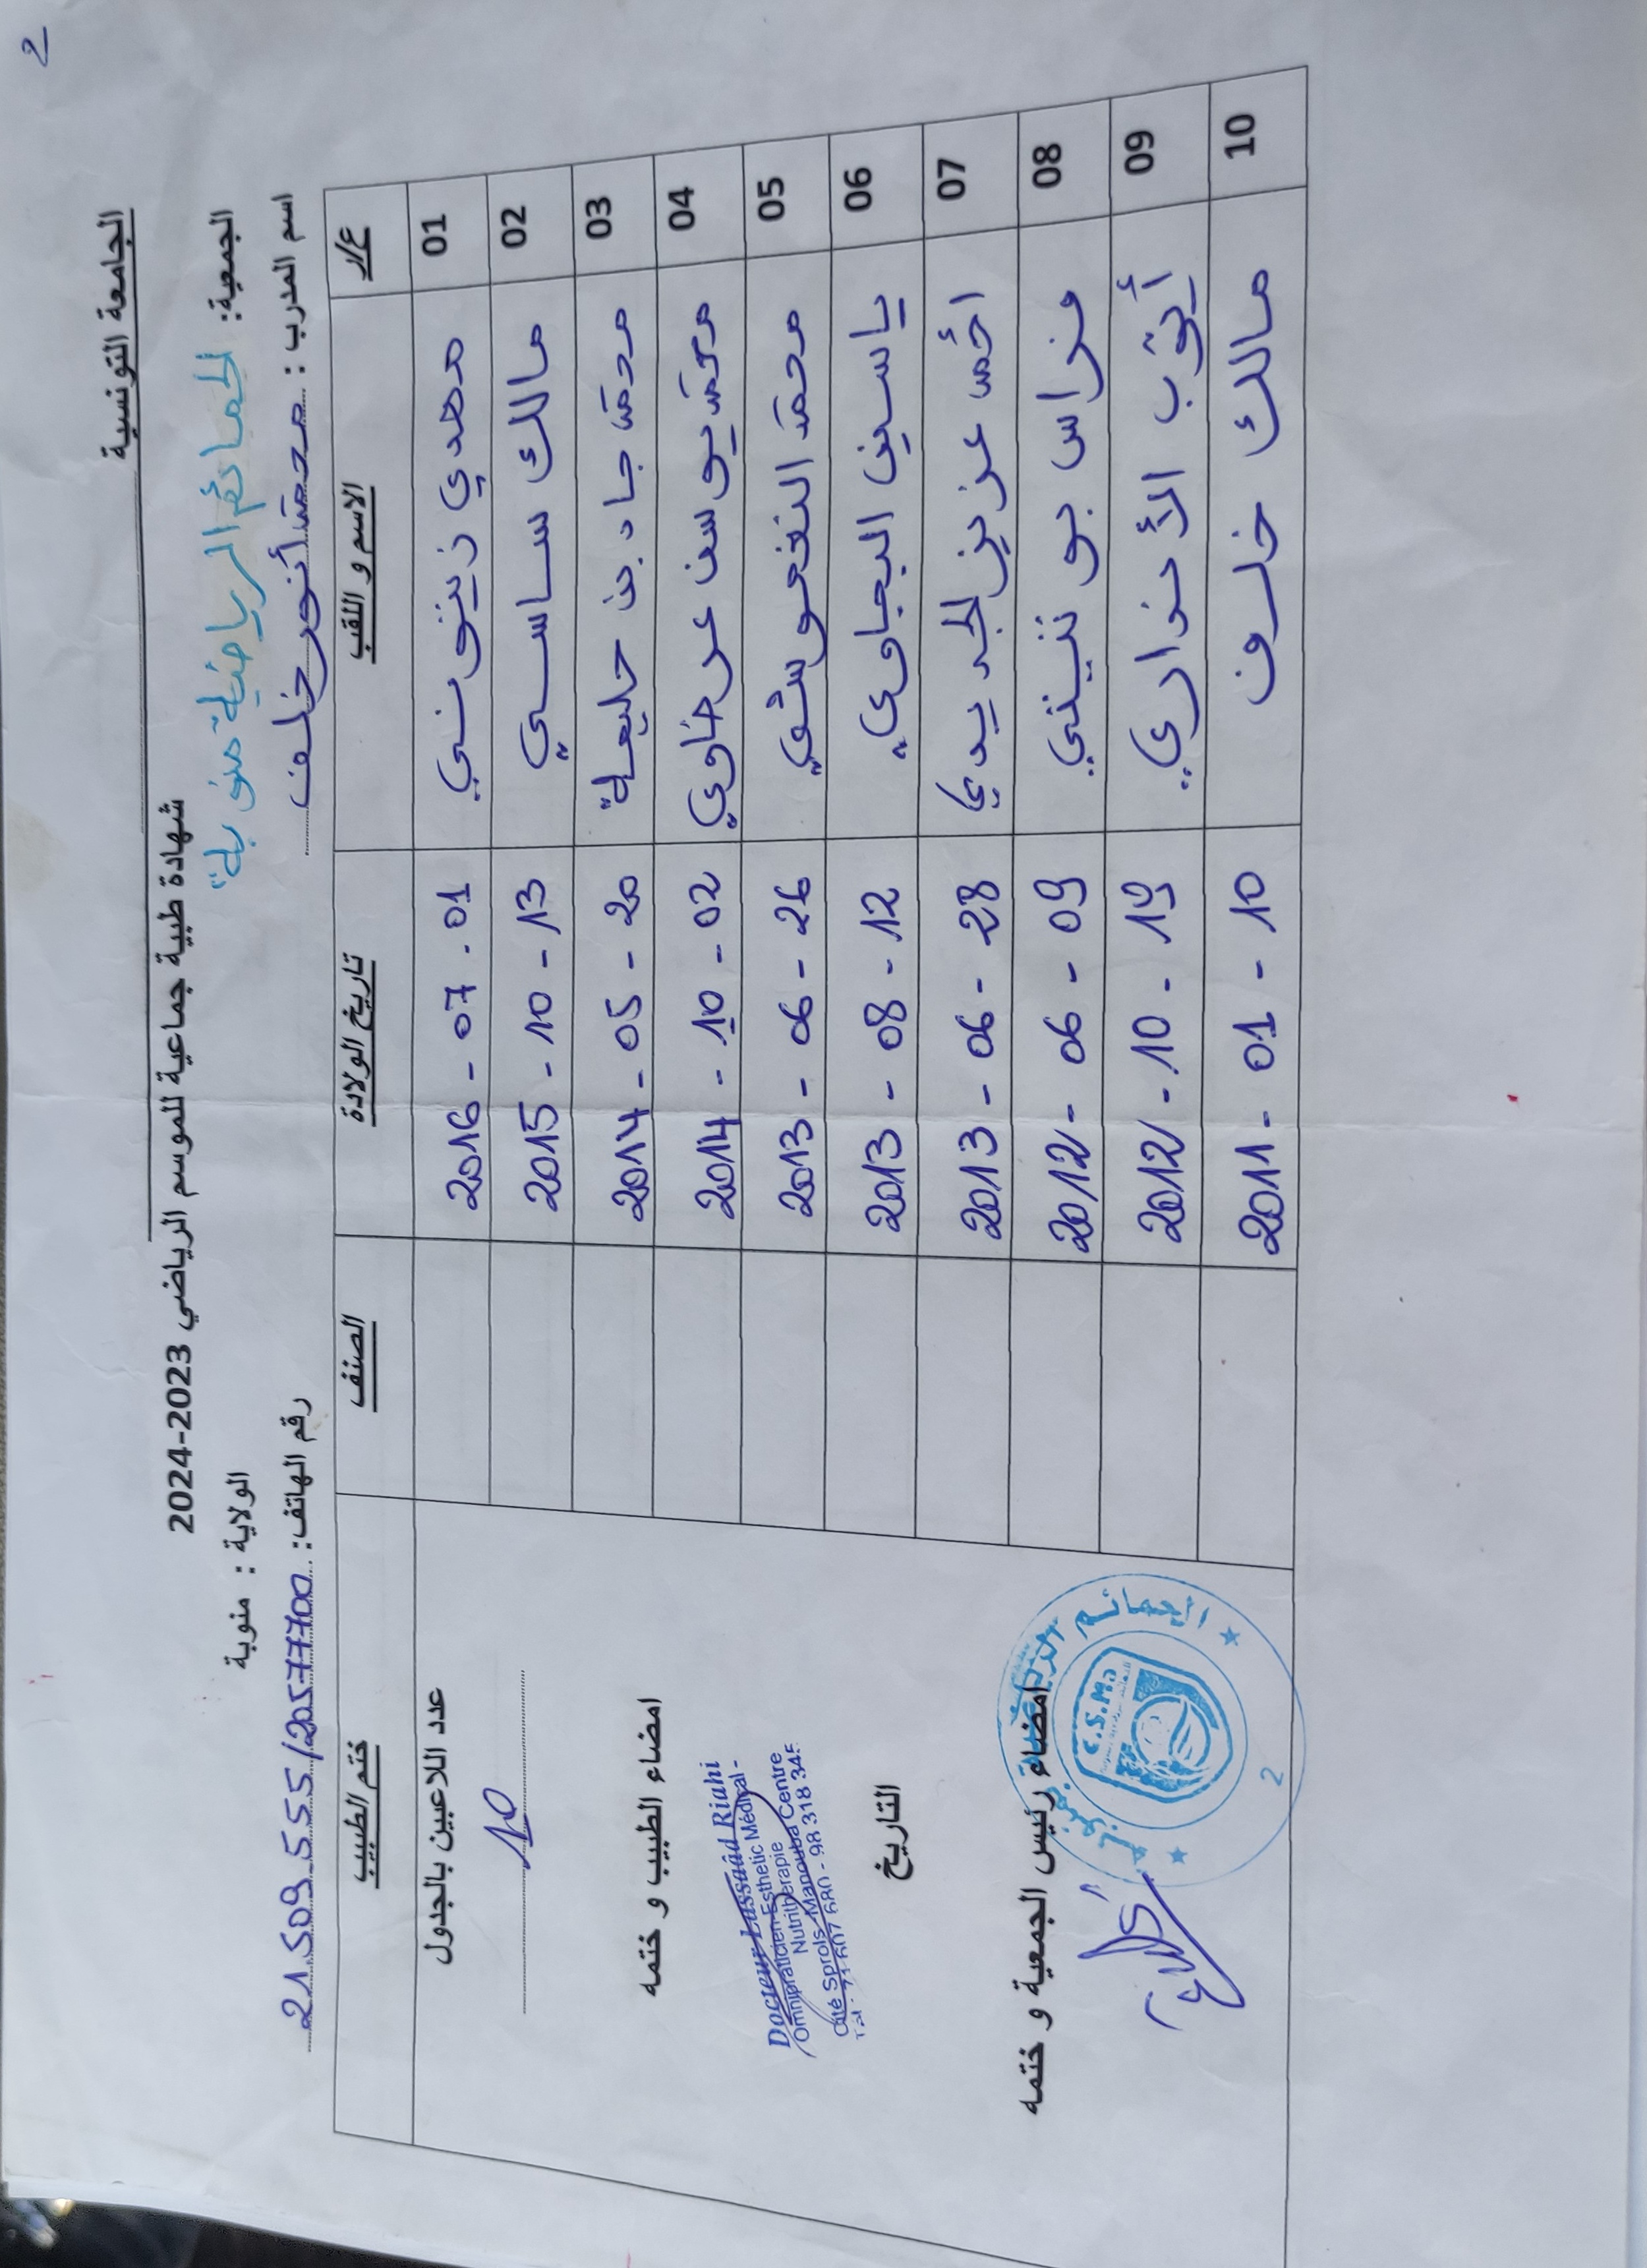 2
الجامعة التونسية
شهادة طبية جماعية للموسم الرياضي 2023-2024
الجمعية: الحمائم الرياضية منوبة
الولاية : منوبة
اسم المدرب : محمّد أنور خلف
رقم الهاتف: 21.509.555/20577700
ع/ر الاسم و اللقب تاريخ الولادة الصنف ختم الطبيب
01 مهدي زيتوني 2016 - 07 - 01
02 مالك ساسي 2015 - 10 - 13
03 محمّد جاد بن حليمة 2014 - 05 - 20
04 محمّد يوسف عرضاوي 2014 - 10 - 02
05 محمّد 2013 - 06 - 26
06 ياسين البجاوي 2013 - 08 - 12
07 أحمد عزيز الجديدي 2013 - 06 - 28
08 فراس 2012 - 06 - 09
09 أيّوب 2012 - 10 - 19
10 مالك خلف 2011 - 01 - 10
عدد اللاعبين بالجدول
10
امضاء الطبيب و ختمه
Docteur Lassaâd Riahi
Omnipraticien-Esthetic Médical -
Nutritherapie
Cité Sprols - Manouba Centre
Tél : 71 607 680 - 98 318 345
التاريخ
امضاء رئيس الجمعية و ختمه
الحمائم الرياضية منوبة
C.S.M.
2